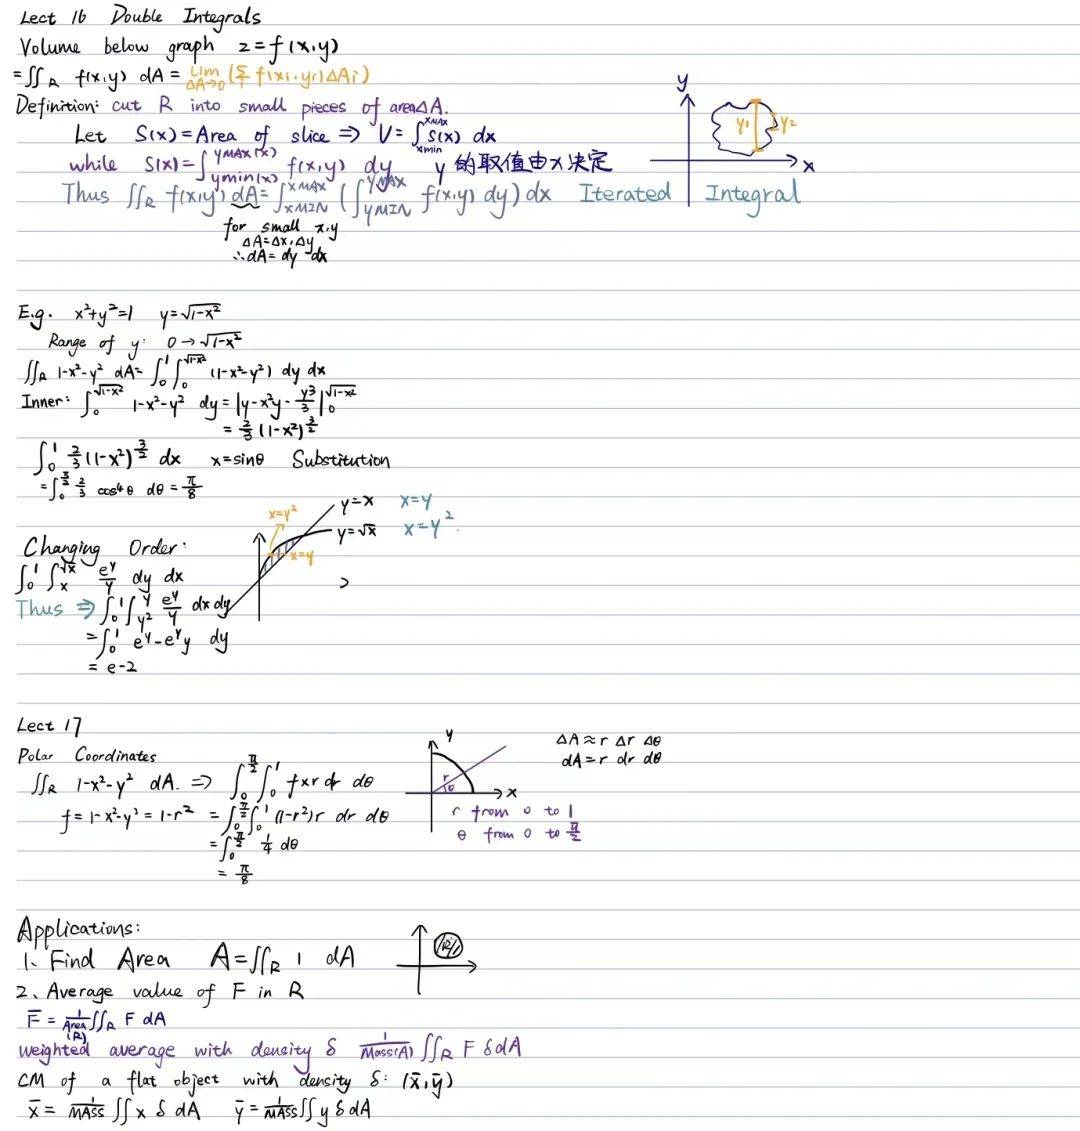 Lect 16 Double Integrals
Volume below graph z=f(x,y)
=∬_R f(x,y) dA = Lim_{ΔA→0} (Σ_i f(xi,yi)ΔAi)
Definition: cut R into small pieces of areaΔA.
Let S(x)=Area of slice ⇒ V=∫_{xmin}^{xMAX} S(x) dx
while S(x)=∫_{ymin(x)}^{yMAX(x)} f(x,y) dy y的取值由x决定
Thus ∬_R f(x,y) dA=∫_{xMIN}^{xMAX} (∫_{yMIN}^{yMAX} f(x,y) dy) dx Iterated Integral
for small x,y
ΔA=Δx,Δy
∴dA= dy dx
y
y1
y2
x
E.g. x²+y²=1 y=√(1-x²)
Range of y: 0→√(1-x²)
∬_R 1-x²-y² dA=∫_0^1∫_0^{√(1-x²)} (1-x²-y²) dy dx
Inner: ∫_0^{√(1-x²)} 1-x²-y² dy = |y-x²y-y³/3|_0^{√(1-x²)}
= 2/3 (1-x²)^{3/2}
∫_0^1 2/3(1-x²)^{3/2} dx x=sinθ Substitution
=∫_0^{π/2} 2/3 cos⁴θ dθ = π/8
x=y² y=x x=y
y=√x x=y²
x=y
Changing Order:
∫_0^1 ∫_x^{√x} e^y/y dy dx
Thus ⇒ ∫_0^1∫_{y²}^y e^y/y dx dy
=∫_0^1 e^y-e^y y dy
= e-2
Lect 17
Polar Coordinates
∬_R 1-x²-y² dA. ⇒ ∫_0^{π/2}∫_0^1 f×r dr dθ
f=1-x²-y²=1-r² =∫_0^{π/2}∫_0^1 (1-r²)r dr dθ
=∫_0^{π/2} 1/4 dθ
= π/8
y
r
θ
x
ΔA≈r Δr Δθ
dA=r dr dθ
r from 0 to 1
θ from 0 to π/2
Applications:
1、Find Area A=∬_R 1 dA
R
2、Average value of F in R
F̄ = 1/Area(R) ∬_R F dA
weighted average with density δ 1/Mass(A) ∬_R F δdA
CM of a flat object with density δ: (x̄,ȳ)
x̄ = 1/MASS ∬ x δ dA ȳ=1/MASS∬ y δ dA